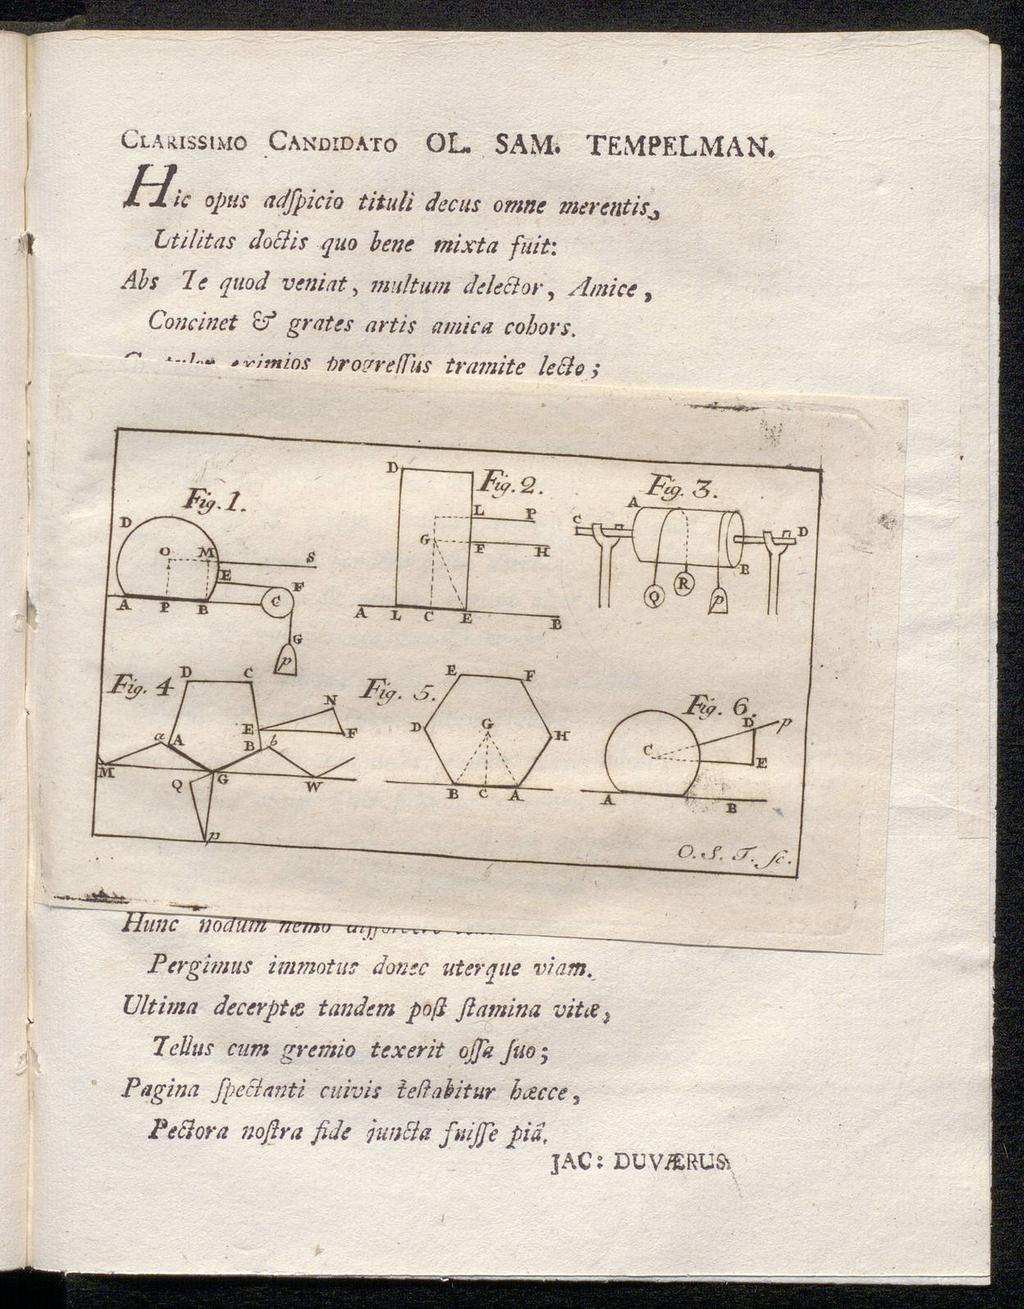 CLARISSIMO CANDIDATO OL. SAM. TEMPELMAN.
Hic opus adſpicio tituli decus omne merentis,
Utilitas doctis quo bene mixta fuit:
Abs Te quod veniat, multum delector, Amice,
Concinet & grates artis amica cohors.
eximios progreſſus tramite lecto;
Fig. 1.
D
O M S
E F
A P B C
G
p
Fig. 2.
D
L P
G F H
A L C E B
Fig. 3.
A
C D
B
Q R p
Fig. 4
D C
N
E F
a A B b
M G W
Q
p
Fig. 5.
E F
D G H
B C A
Fig. 6.
D p
C E
A B
O. S. T. ſc.
Hunc nodum nemo
Pergimus immotus donec uterque viam.
Ultima decerptæ tandem poſt ſtamina vitæ,
Tellus cum gremio texerit oſſa ſuo;
Pagina ſpectanti cuivis teſtabitur hæcce,
Pectora noſtra fide juncta fuiſſe piâ.
JAC: DUVÆRUS.